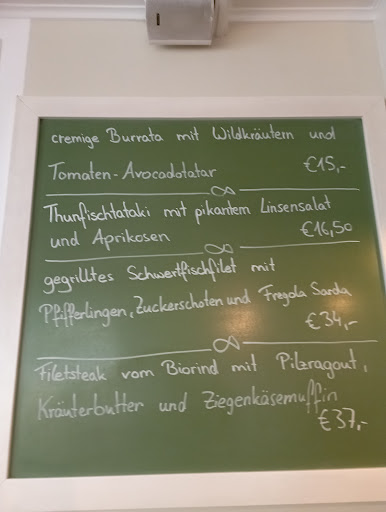 cremige Burrata mit Wildkräutern und
Tomaten-Avocadotatar €15,-
Thunfischtataki mit pikantem Linsensalat
und Aprikosen €16,50
gegrilltes Schwertfischfilet mit
Pfifferlingen, Zuckerschoten und Fregola Sarda
€34,-
Filetsteak vom Biorind mit Pilzragout,
Kräuterbutter und Ziegenkäsemuffin
€37,-